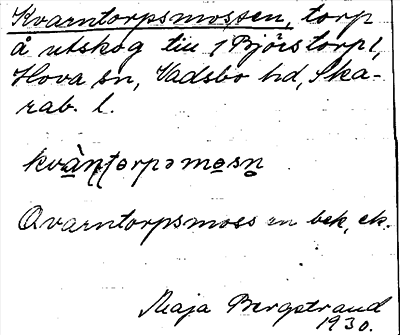 Kvarntorpsmossen, torp
å utskog till 1 Björstorp,
Hova sn, Vadsbo hd, Ska-
rab. l.
kvàn̥torpəmosn̥
Qvarntorpsmossen bek, ek.
Maja Bergstrand
1930.